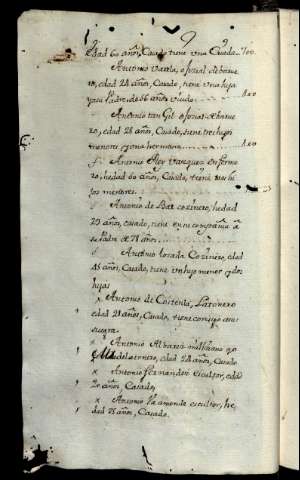 edad 60 años, Casado tiene Una Criada
Antonio Varela, oficial
edad 24 años, Casado, tiene Una hija
y su Padre, de 56 años viudo
Antonio tan Gil oficial
edad 28 años, Casado, tiene tres hijos
menores, y una hermana
Antonio Rey Vazquez enfermo
hedad 60 años, Casado, tiene
jos menores
Antonio de Bal Cozinero, hedad
29 años, casado, tiene en su compañia a
su Padre de 71 años
Antonio losada Cozinero, edad
45 años, Casado, tiene Un hijo menor y dos
hijas
x Antonio de Costenla, Latonero
edad 29 años, Casado, tiene consigo a su
suegra
x Antonio Albarez
edad 24 años, Casado
x Antonio fernandez escultor, edad
30 años, Casado,
x Antonio Vaamonde escultor, he
dad 25 años, Casado.